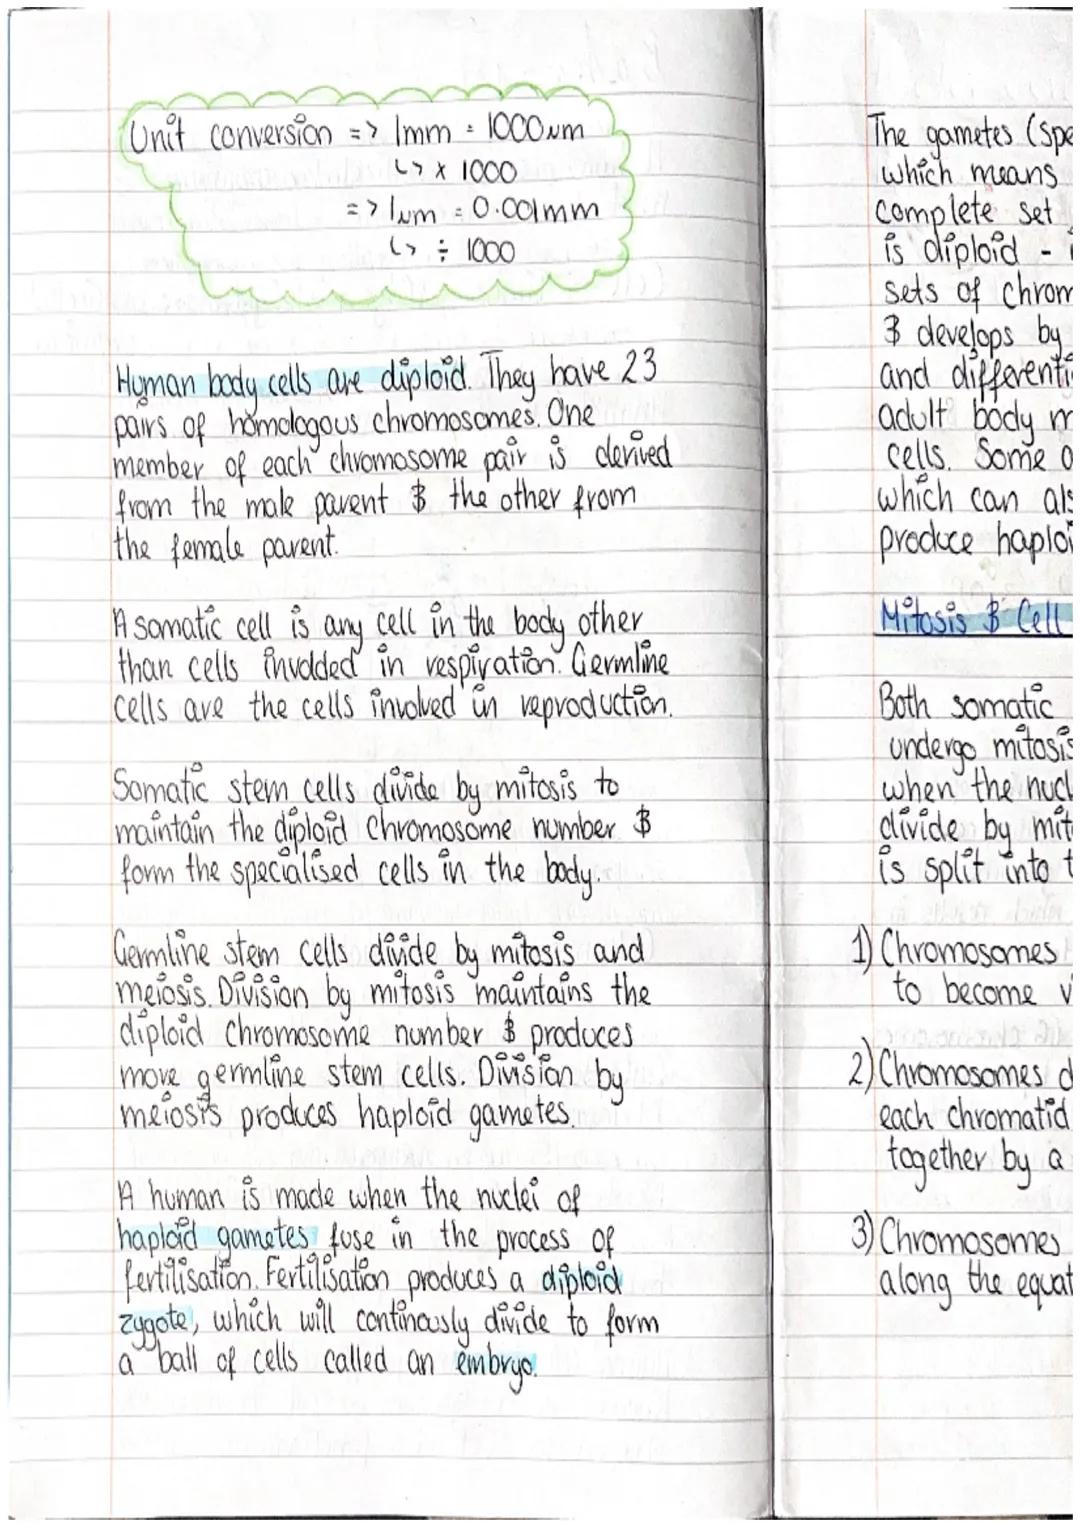 Unit conversion => 1mm = 1000um
↳ x 1000
=> 1um = 0.001mm
↳ ÷ 1000
Human body cells are diploid. They have 23
pairs of homologous chromosomes. One
member of each chromosome pair is derived
from the male parent & the other from
the female parent.
A somatic cell is any cell in the body other
than cells involded in respiration. Germline
cells are the cells involved in reproduction.
Somatic stem cells divide by mitosis to
maintain the diploid chromosome number &
form the specialised cells in the body.
Germline stem cells divide by mitosis and
meiosis. Division by mitosis maintains the
diploid chromosome number & produces
more germline stem cells. Division by
meiosis produces haploid gametes.
A human is made when the nuclei of
haploid gametes fuse in the process of
fertilisation. Fertilisation produces a diploid
zygote, which will continously divide to form
a ball of cells called an embryo.
The gametes (spe
which means
complete set
is diploid -
sets of chrom
& develops by
and differenti
adult body m
cells. Some
which can als
produce haploi
Mitosis & Cell
Both somatic
undergo mitosis
when the nucl
divide by mit
is split into t
1) Chromosomes
to become v
2) Chromosomes d
each chromatid
together by a
3) Chromosomes
along the equat